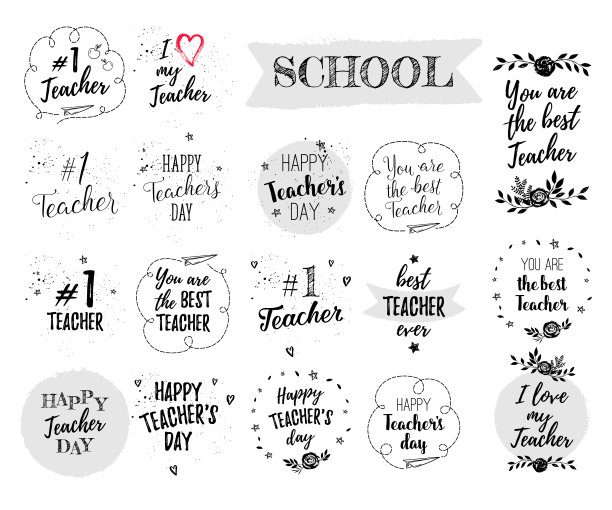 #1
Teacher
I
my
Teacher
SCHOOL
You are
the best
Teacher
#1
Teacher
HAPPY
Teacher's
DAY
HAPPY
Teacher's
DAY
You are
the best
Teacher
#1
TEACHER
You are
the BEST
TEACHER
#1
Teacher
best
TEACHER
ever
YOU ARE
the best
Teacher
HAPPY
Teacher
DAY
HAPPY
TEACHER'S
DAY
Happy
TEACHER'S
day
HAPPY
Teacher's
day
I love
my
Teacher